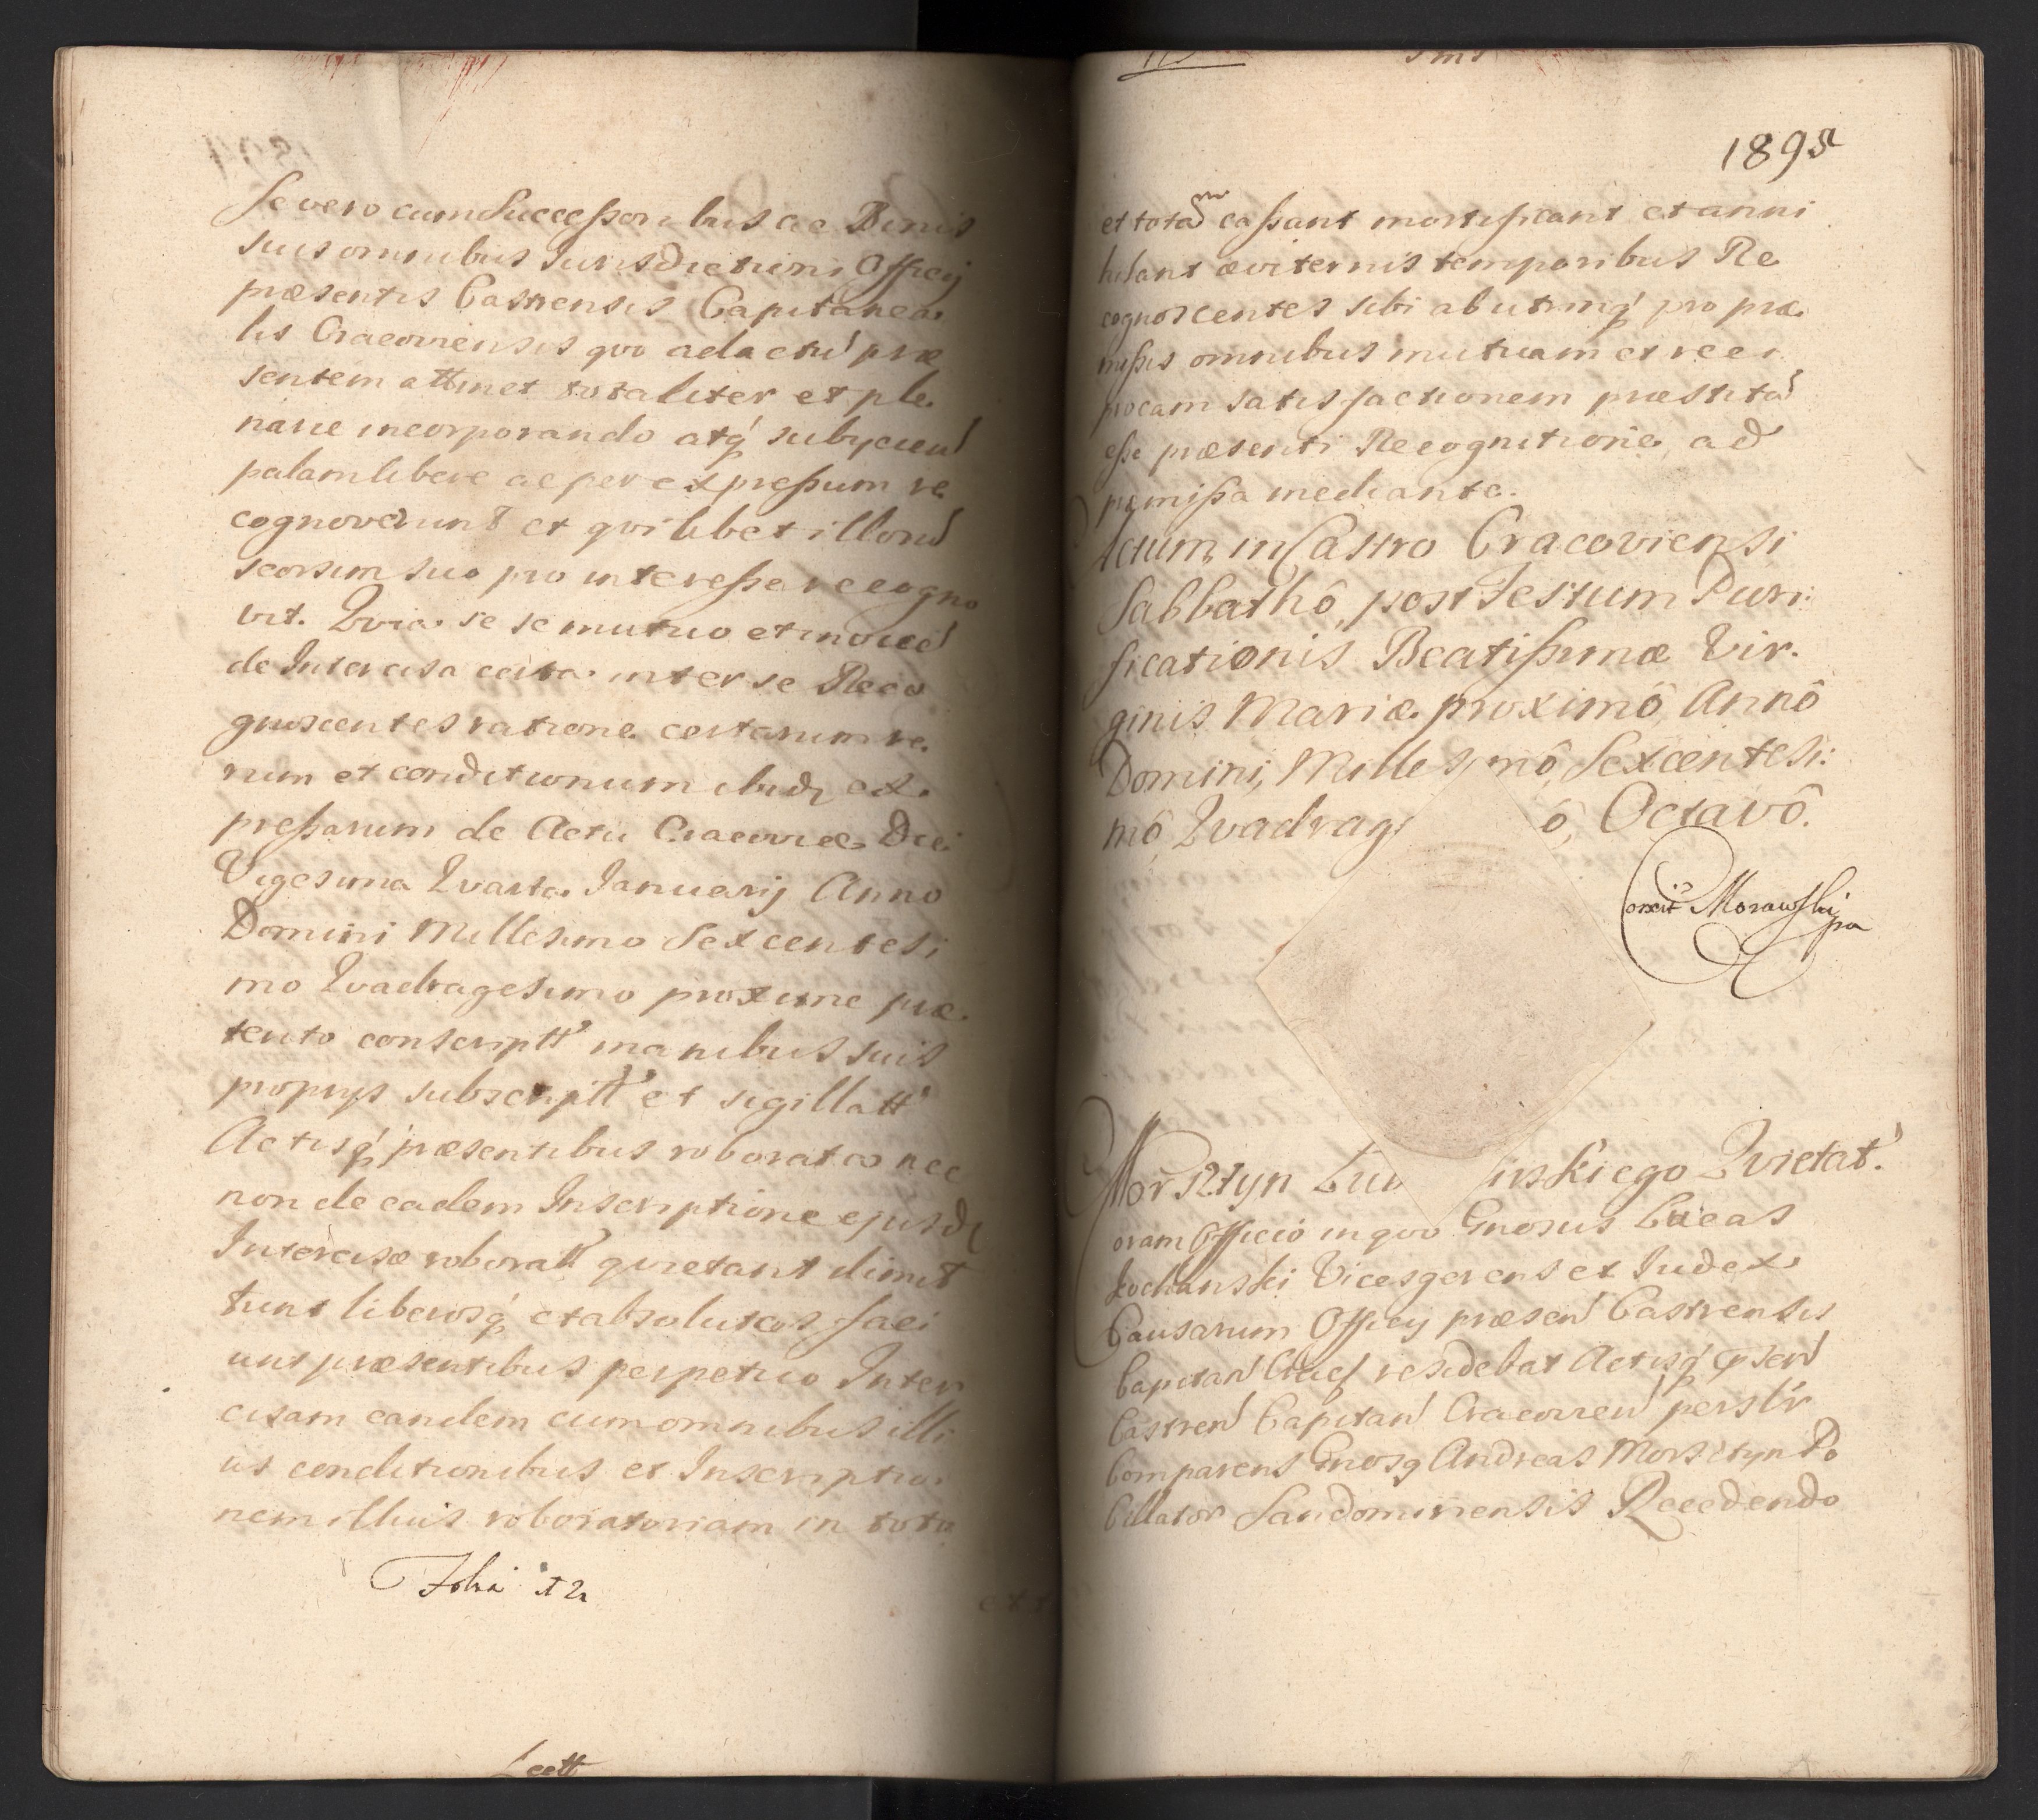 Se vero cum Successoribus ac Bonis
suis omnibus Iurisdictioni Officij
præsentis Castrensis Capitanea
lis Cracoviensis qvo ad actu præ
sentem attinet totaliter et ple
narie incorporando atq subijcien
palam libere ac per expressum re
cognoverunt et qvilibet illoru
seorsim suo pro interesse recogno
vit. Qvia se se mutuo et invice
de Intercisa certa inter se Reco
gnoscentes ratione certarum re
rum et conditionum ibid ex
pressarum de Actu Cracoviæ Die
Vigesima Qvarta Ianuarij Anno
Domini Millesimo Sexcentesi
mo Qvadragesimo proxime præ
terito conscriptt manibus suis
proprijs subscriptt et sigillatt
Actisq præsentibus roborat co nec
non de eadem Inscriptione ejusd
Intercisæ roboratt qvietant dimit
tunt liberosq et absolutos faci
unt præsentibus perpetuo Inter
cisam eandem cum omnibus illi
us conditionibus et Inscriptio
nem illius roboratoriam in toto
Folia
Lectt
1895
et tota cassant mortificant et anni
hilant æviternis temporibus Re
cognoscentes sibi ab utrinq pro præ
missis omnibus mutuam et reci
procam satisfactionem præstita
esse præsenti Recognitione ad
præmissa mediante.
Actum in Castro Cracoviensi
Sabbathô, post Festum Puri:
ficationis Beatissimæ Vir.
ginis Mariæ proximô, Annô
Domini, Millesimô, Sexcentesi:
mô, Qvadrag ô, Octavô.
Correxit Morawski
Morsztyn inskiego Qvietat.
Coram Officio in qvo Gnosus Lucas
Kochanski Vicesgerens et Iudex
Causarum Officij præsen Castrensis
Capitan Crac residebat Actisq psen
Castren Capitan Cracovien persltr
Comparens Gnosq Andreas Morsztyn Po
cillator Sandomiriensis Recedendo